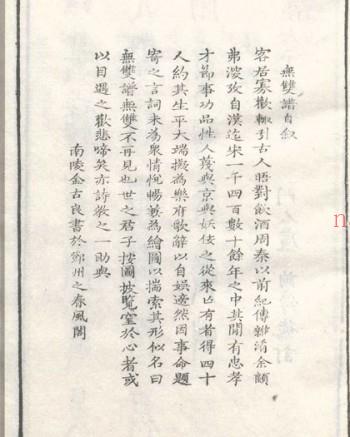 無雙譜自叙
客居寡歡輒引古人晤對飲酒周秦以前紀傳雜淆余頗
弗深攷自漢迄宋一千四百數十餘年之中其閒有忠孝
才節事功品性人莫與京與妖佞之從來亾有者得四十
人約其生平大端擬為樂府歌辭以自娛邊然因事命題
寄之言詞未為眾情悅暢兼為繪圖以揣索其形似名曰
無雙譜無雙不再見也世之君子按圖披覧窒於心者或
以目遇之歡悲啼笑亦詩教之一助與
南陵金古良書於鄭州之春風閣
n